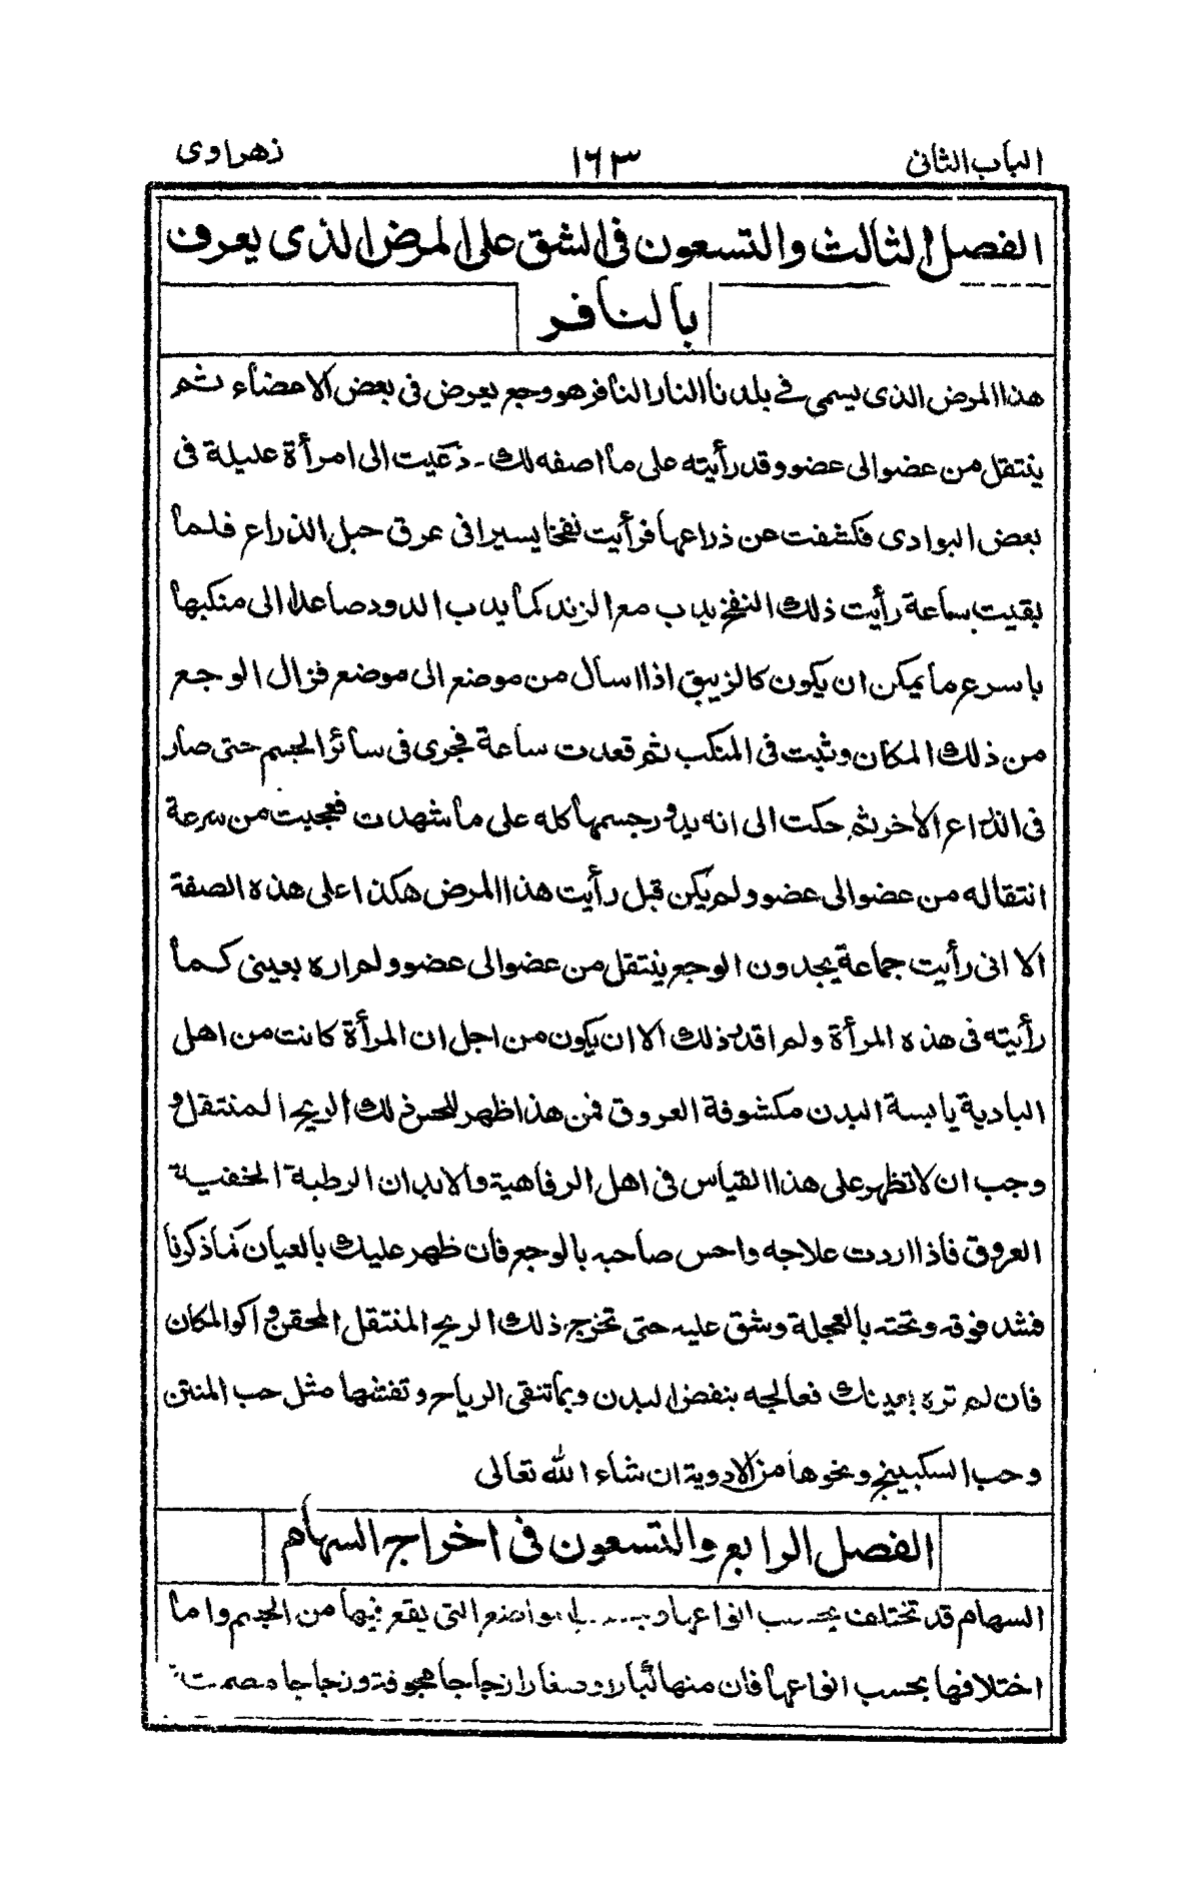 الباب الثانى ١٦٣ زهراوى
الفصل الثالث والتسعون فى الشق على المرض الذى يعرف
بالنافر
هذا المرض الذى يسمى فى بلدنا النار النافر هو وجع يعرض فى بعض الاعضاء ثم
ينتقل من عضو الى عضو وقد رأيته على ما اصفه لك ـ دعيت الى امرأة عليلة فى
بعض البوادى فكشفت عن ذراعها فرأيت نفخا يسيرا فى عرق حبل الذراع فلما
بقيت بساعة رأيت ذلك النفخ يدب مع الزند كما يدب الدود صاعدا الى منكبها
باسرع ما يمكن ان يكون كالزيبق اذا اسال من موضع الى موضع فزال الوجع
من ذلك المكان وثبت فى المنكب ثم قعدت ساعة فجرى فى سائر الجسم حتى صار
فى الذراع الأخر ثم حكت الى انه يدور جسمها كله على ما شهدت فعجبت من سرعة
انتقاله من عضو الى عضو ولم يكن قبل رأيت هذا المرض هكذا على هذه الصفة
الا انى رأيت جماعة يجدون الوجع ينتقل من عضو الى عضو ولم اره بعينى كما
رأيته فى هذه المرأة ولم اقدر ذلك الا ان يكون من اجل ان المرأة كانت من اهل
البادية يابسة البدن مكشوفة العروق فمن هذا ظهر للحس ذلك الريح المنتقل و
وجب ان لا تظهر على هذا القياس فى اهل الرفاهية والابدان الرطبة الخفية
العروق فاذا اردت علاجه واحس صاحبه بالوجع فان ظهر عليك بالعيان كما ذكرنا
فشد فوقه وتحته بالعجلة وشق عليه حتى تخرج ذلك الريح المنتقل المحقن و اكو المكان
فان لم تره بعيناك فعالجه بنفض البدن وبما تنقى الرياح وتفتنها مثل حب المنتن
وحب السكبينج ونحوها من الادوية ان شاء الله تعالى
الفصل الرابع والتسعون فى اخراج السهام
السهام قد تختلف بحسب انواعها المواضع التى يقع فيها من الجسم واما
اختلافها بحسب انواعها فان منها كبارا وصغارا زجاجا مجوفة وزجاجا مصمتة